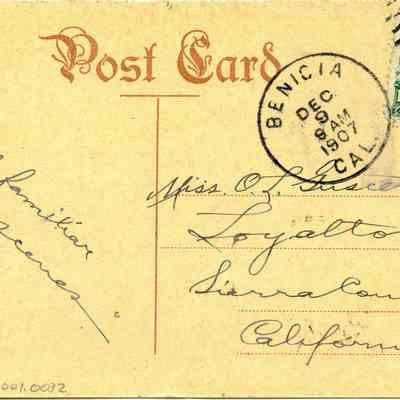 Post Card
BENICIA
DEC
9
8 AM
1907
CAL.
familiar
scenes
Miss. O.
Loyalto
Sierra Cou
Califor
001.0032